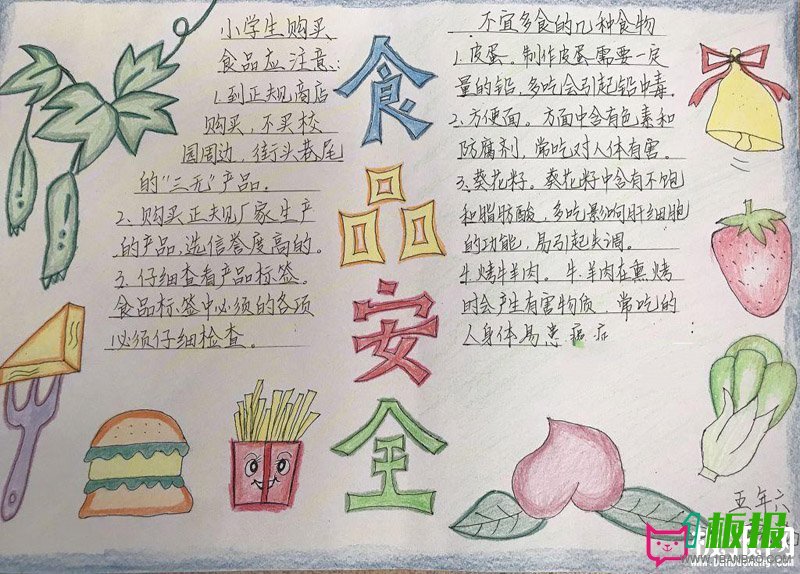 小学生购买
食品应注意:
1.到正规商店
购买,不买校
园周边、街头巷尾
的“三无”产品。
2、购买正规厂家生产
的产品,选信誉度高的。
3.仔细查看产品标签。
食品标签中必须的各项
必须仔细检查。
食品安全
不宜多食的几种食物
1.皮蛋。制作皮蛋需要一定
量的铅,多吃会引起铅中毒。
2.方便面。方面中含有色素和
防腐剂,常吃对人体有害。
3.葵花籽。葵花籽中含有不饱
和脂肪酸,多吃影响肝细胞
的功能,易引起失调。
4.烤牛羊肉。牛、羊肉在熏烤
时会产生有害物质,常吃的
人身体易患癌症
五年六
板报
WWW.1BANBAO.COM